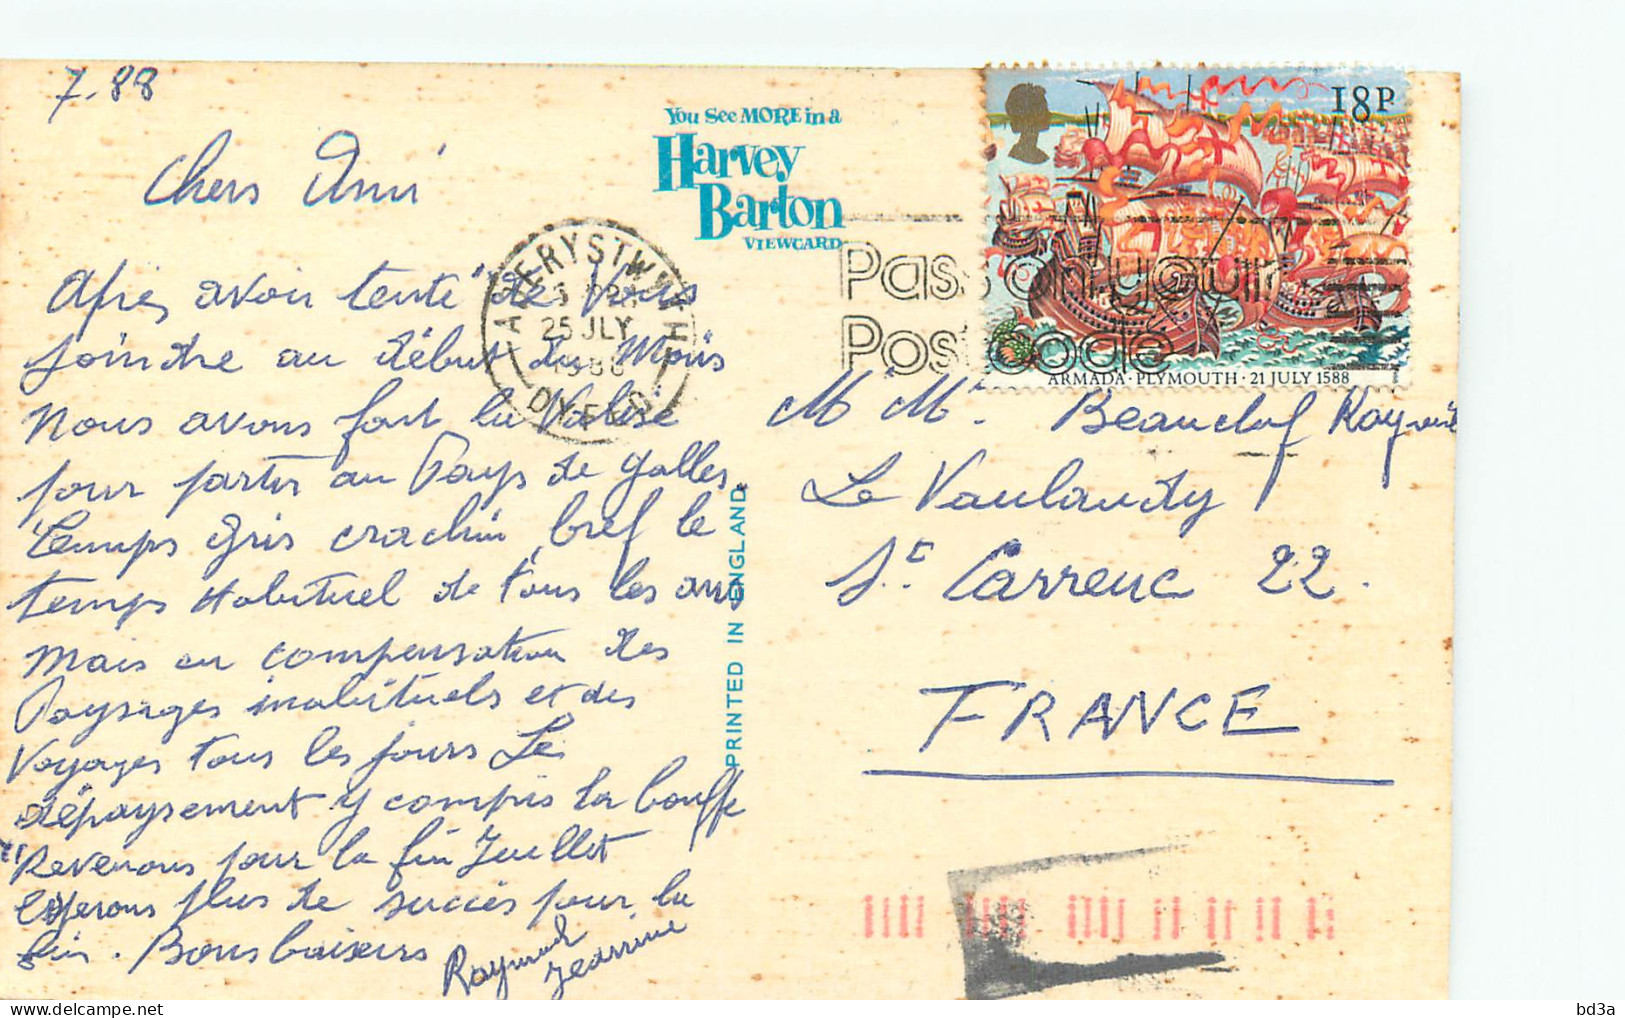 7.88
Chers Ami
Après avoir tenté de Vous
joindre au début du Mois
Nous avons fait la Valise
pour partir au Pays de Galles.
Temps gris crachin, bref le
temps Habituel de tous les ans
Mais en compensation des
Paysages inhabituels et des
Voyages tous les jours Le
dépaysement y compris la bouffe
Revenons pour la fin Juillet
Espérons plus de succès pour la
fin. Bons baisers
Raymond
Jeannine
You See MORE in a
Harvey
Barton
VIEWCARD
PRINTED IN ENGLAND
ABERYSTWYTH
25 JLY
1988
DYFED
Pass on your
Postcode
18P
ARMADA · PLYMOUTH · 21 JULY 1588
M Me Beauduf
Le Vaulaudy
St Carreuc 22.
FRANCE
bd3a